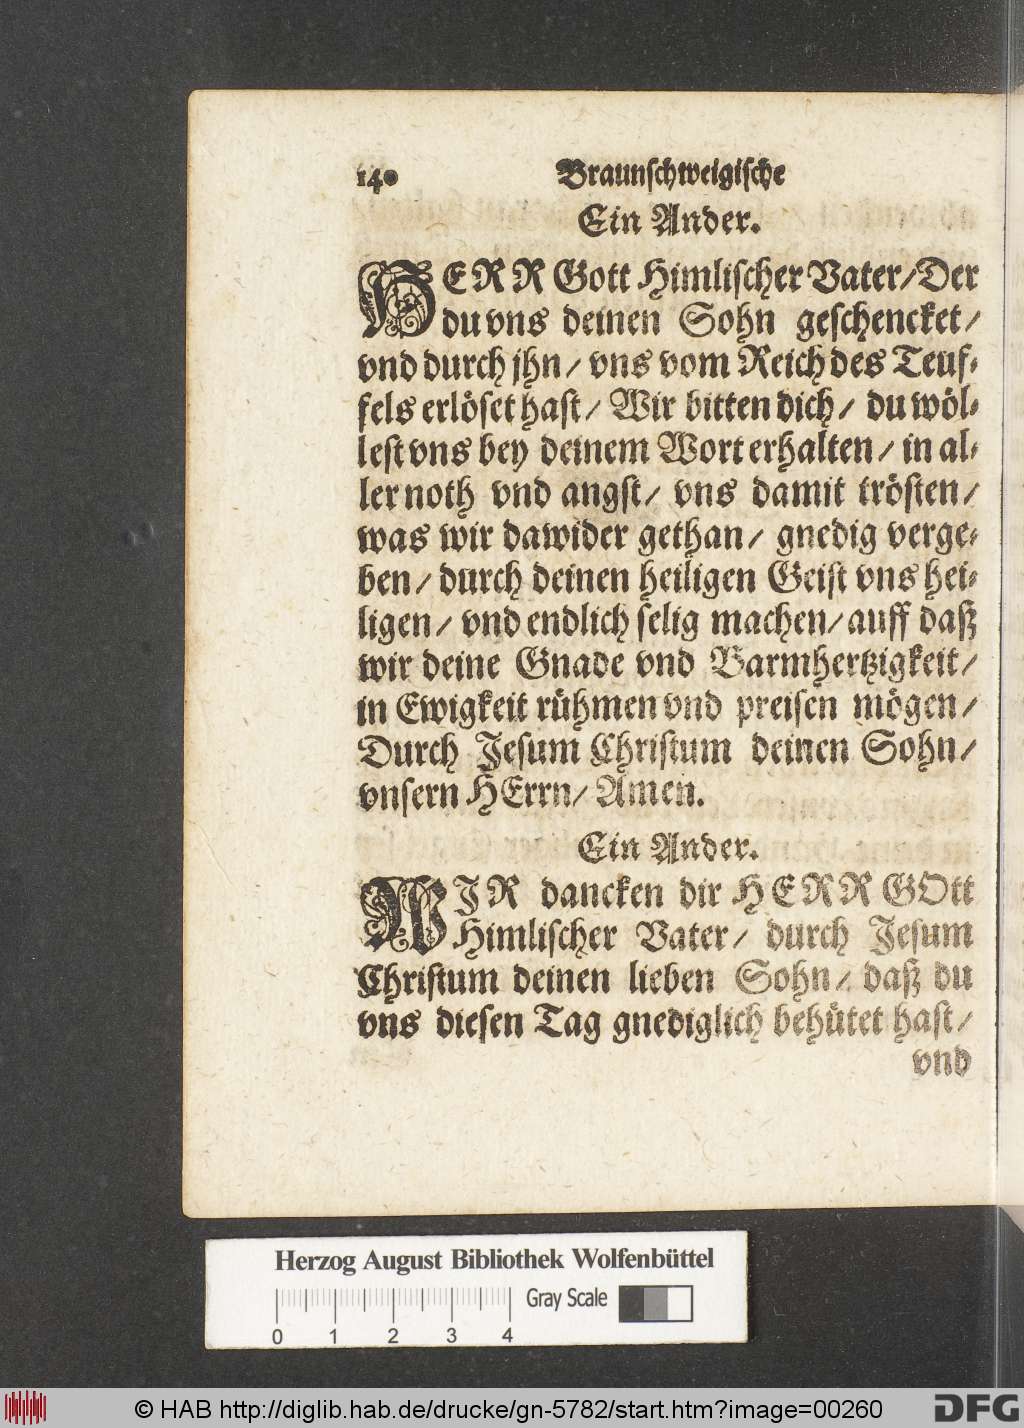 140 Braunſchweigiſche
Ein Ander.
HERR Gott Himliſcher Vater/Der
du vns deinen Sohn geſchencket/
vnd durch jhn/ vns vom Reich des Teuf⸗
fels erlöſet haſt/ Wir bitten dich/ du wöl⸗
leſt vns bey deinem Wort erhalten/ in al⸗
ler noth vnd angſt/ vns damit tröſten/
was wir dawider gethan/ gnedig verge⸗
ben/ durch deinen heiligen Geiſt vns hei⸗
ligen/ vnd endlich ſelig machen/ auff daß
wir deine Gnade vnd Barmhertzigkeit/
in Ewigkeit rühmen vnd preiſen mögen/
Durch Jeſum Chriſtum deinen Sohn/
vnſern HErrn/ Amen.
Ein Ander.
WJR dancken dir HERR GOtt
Himliſcher Vater/ durch Jeſum
Chriſtum deinen lieben Sohn/ daß du
vns dieſen Tag gnediglich behütet haſt/
vnd
Herzog August Bibliothek Wolfenbüttel
Gray Scale
0 1 2 3 4
© HAB http://diglib.hab.de/drucke/gn-5782/start.htm?image=00260
DFG